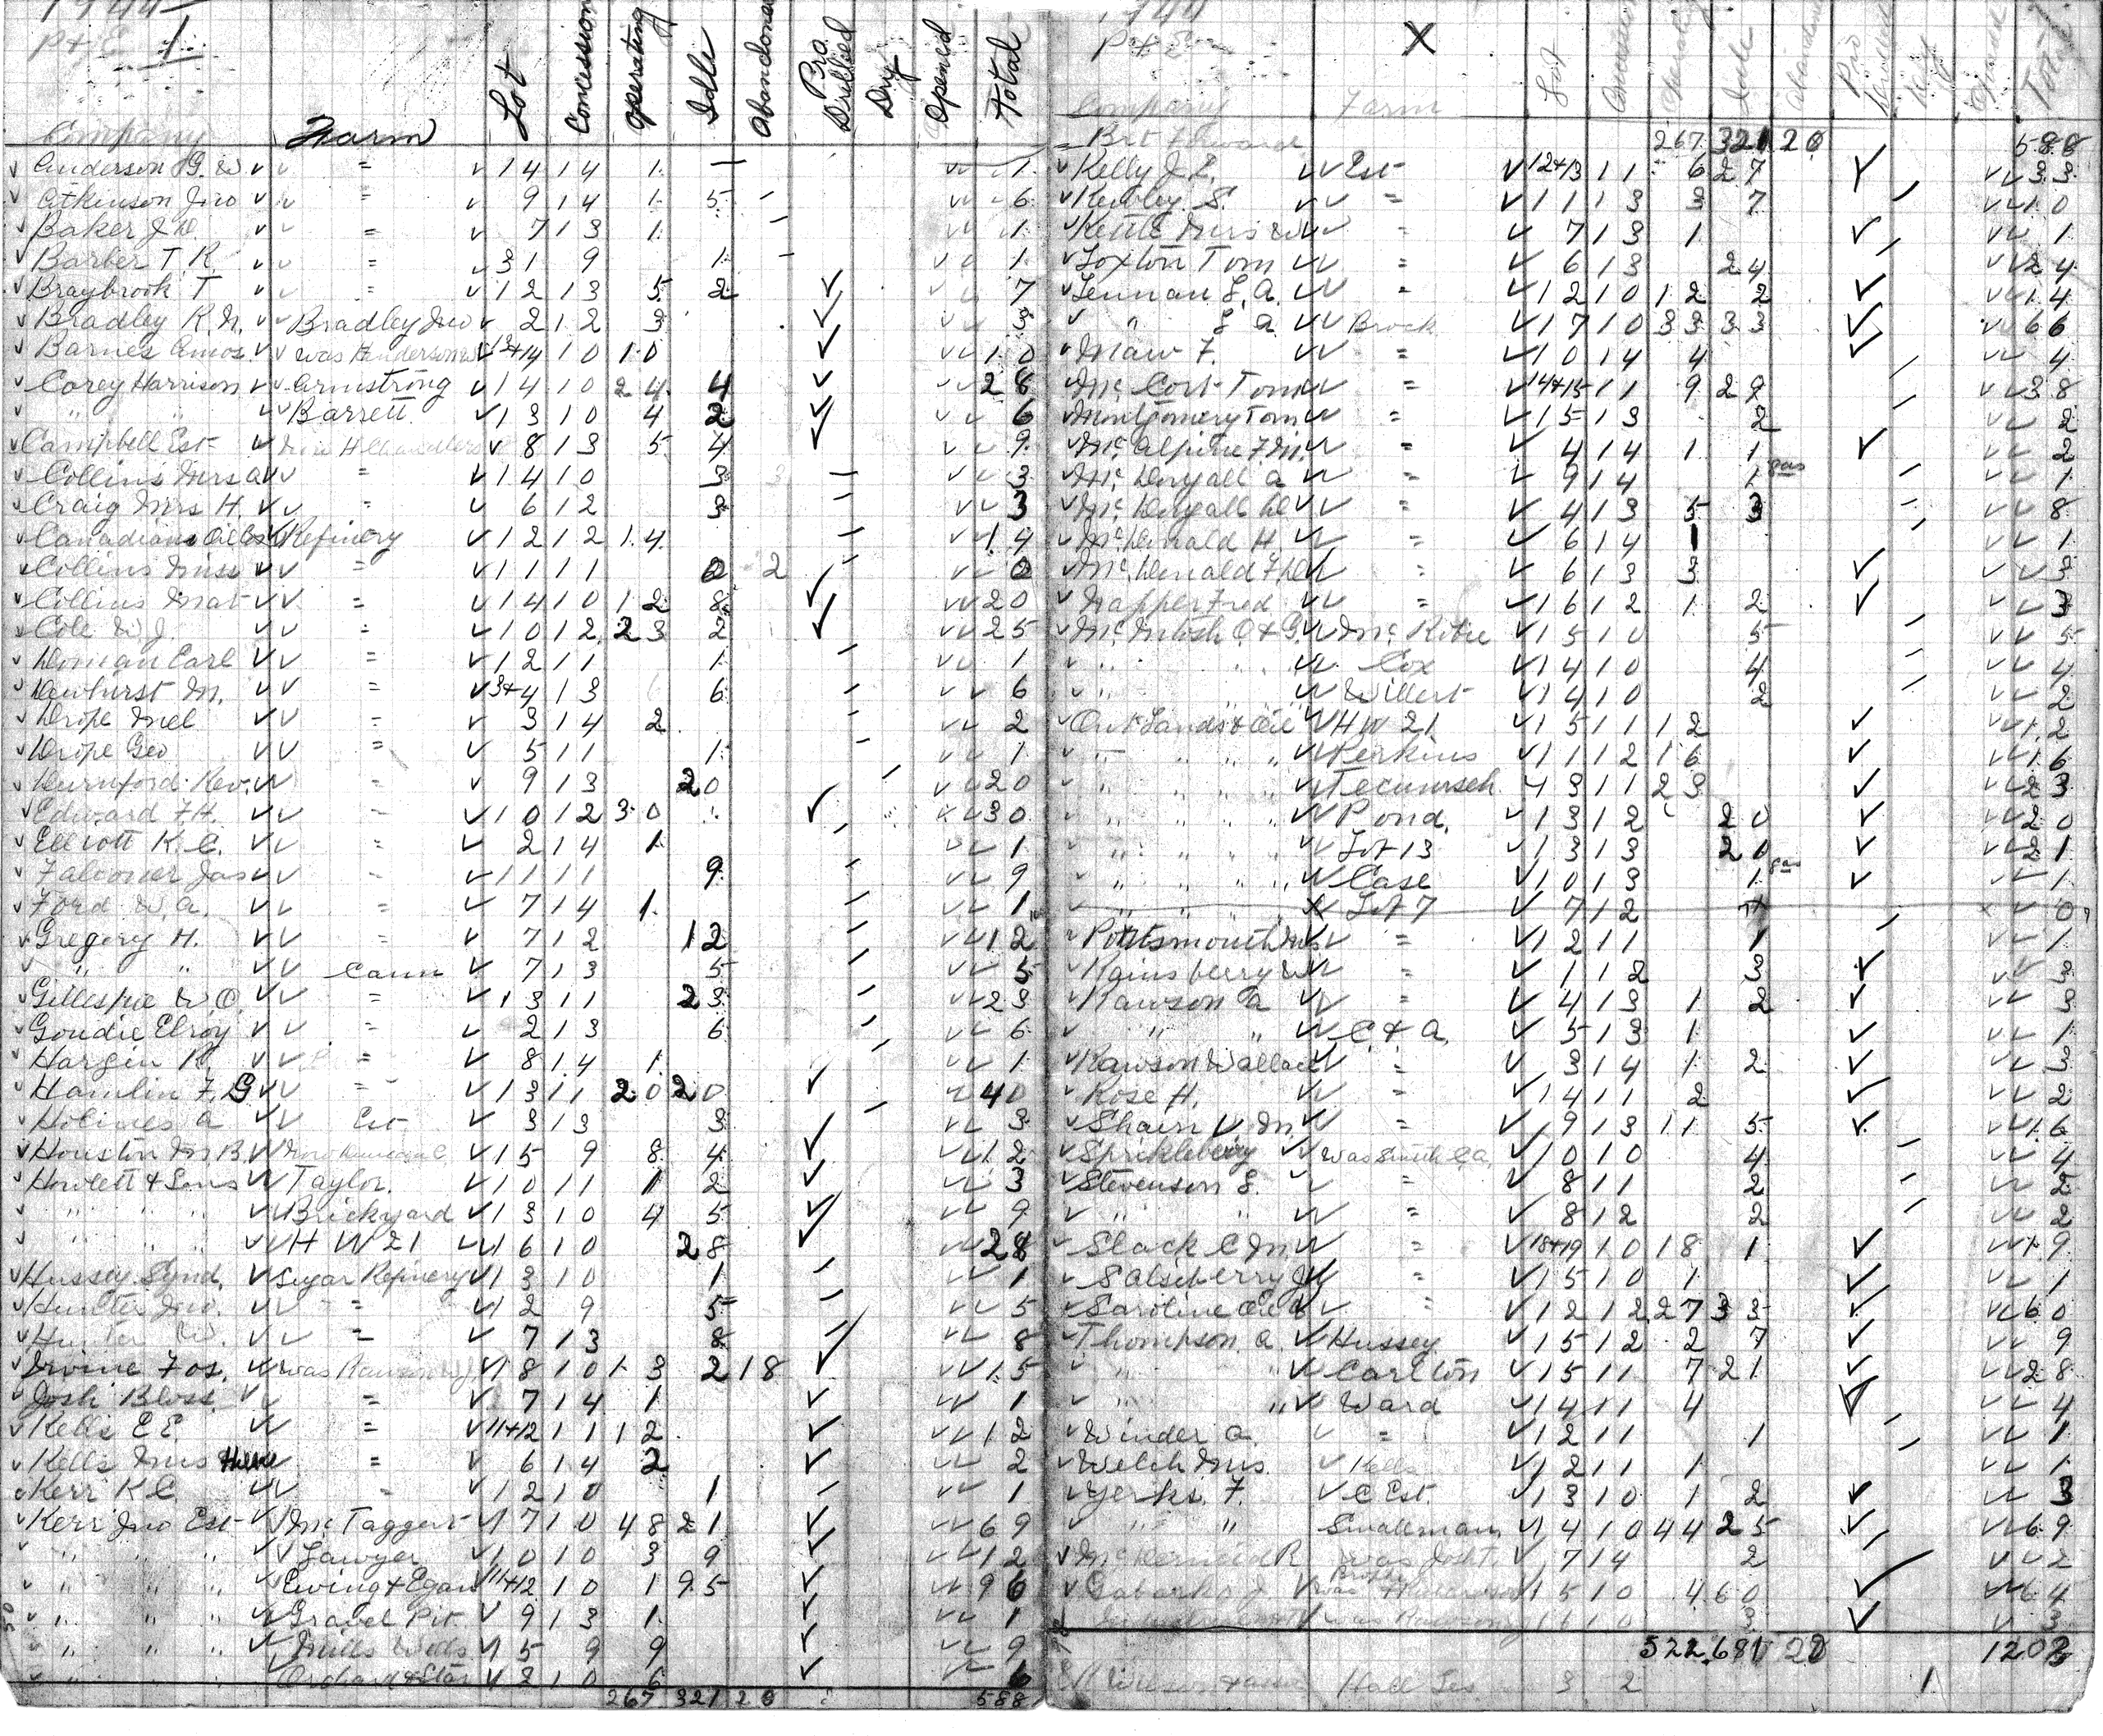 1944
P+E 1
Company Farm Lot Concession Operating Idle Abandoned Pro Drilled Dry Opened Total
Anderson G. W. " 14 14 1 — 1
Atkinson Jno " 9 14 1 5 6
Baker J. D. " 7 13 1 1
Barber T. R. " 31 9 1 1
Braybrook T " 12 13 5 2 7
Bradley R. M. Bradley Jno 2 12 3 3
Barnes Amos was Hendersons 13+14 10 10 10
Corey Harrison Armstrong 14 10 24 4 28
" " Barrett 13 10 4 2 6
Campbell Est 8 13 5 4 9
Collins Mrs a " 14 10 3 3 3
Craig Mrs H. " 6 12 3 3
Canadian Oil Cos Refinery 12 12 14 14
Collins Miss " 11 11 2 0
Collins Mat " 14 10 12 8 20
Cole W J. " 10 12 23 2 25
Doman Carl " 12 11 1 1
Dewhurst M. " 3+4 13 6 6
Drope Mel " 3 14 2 2
Drope Geo " 5 11 1 1
Durnford Rev. " 9 13 20 20
Edward F H. " 10 12 30 30
Elliott K. C. " 2 14 1 1
Falconer Jas " 11 11 9 9
Ford W. A. " 7 14 1 1
Gregory H. " 7 12 12 12
" " Cann 7 13 5 5
Gillespie W O. " 13 11 23 23
Goudie Elroy " 2 13 6 6
Hargin R. " 8 14 1 1
Hamlin F. G " 13 11 20 20 40
Holmes A Est 3 13 3 3
Houston M B. 15 9 8 4 12
Howlett & Sons Taylor. 10 11 1 2 3
" " " Brickyard 13 10 4 5 9
" " " H W 21 16 10 28 28
Hussey Synd. Sugar Refinery 13 10 1 1
Hunter Jno. " 12 9 5 5
Hunter W. " 7 13 8 8
Irvine Fos. was Rawson 18 10 13 2 18 15
Josh Bloss " 7 14 1 1
Kells E E. " 11+12 11 12 12
Kells Mrs " 6 14 2 2
Kerr K C " 12 10 1 1
Kerr Jno Est McTaggert 17 10 48 21 69
" " " Sawyer 10 10 3 9 12
" " " Ewing & Egan 11+12 10 1 95 96
" " " Gravel Pit 9 13 1 1
" " " Mills Wells 15 9 9 9
" " " Orchard & Star 2 10 6 6
267 321 20 588
1944
P+E X
Company Farm Lot Concession Operating Idle Abandoned Pro Drilled Dry Opened Total
Brt Forward 267 321 20 588
Kelly J. L. Est 12+13 11 6 27 33
Kewley S. " 11 13 3 7 10
Kettle Mrs W " 7 13 1 1
Loxton Tom " 6 13 24 24
Lennan L. A. " 12 10 12 2 14
" " L A Brock 17 10 33 33 66
Maw F. " 10 14 4 4
Mc Cort Tom " 14+15 11 9 29 38
Montgomery Tom " 15 13 2 2
Mc Alpine F M. " 4 14 1 1 2
Mc Dougall A " 9 14 1 gas 1
Mc Dougall D " 4 13 5 3 8
Mc Donald H " 6 14 1 1
Mc Donald F D " 6 13 3 3
Napper Fred " 16 12 1 2 3
Mc Intosh O & G. Mc Ritie 15 10 5 5
" " " Cox 14 10 4 4
" " Willert 14 10 2 2
Ont Lands & Oil H W 21 15 11 12 12
" " " " Perkins 11 12 16 16
" " " " Tecumseh 4 3 11 23 23
" " " " Pond. 13 12 20 20
" " " " Lot 13 13 13 20 gas 21
" " " " Case 10 13 1 1
" " " " Lot 7 7 12 0
Portsmouth Mrs " 12 11 1 1
Rainsberry W " 1 12 3 3
Rawson A " 4 13 1 2 3
" " C & A. 5 13 1 1
Rawson Wallace " 3 14 1 2 3
Rose H. " 14 11 2 2
Shain V M " 9 13 11 5 16
Sprikleberry was Smith C A. 10 10 4 4
Stevenson S. " 8 11 2 2
" " " 8 12 2 2
Slack C M " 18+19 10 18 1 19
Salsberry J " 15 10 1 1
Saroline Oil " 12 12 27 33 60
Thompson A. Hussey 15 12 2 7 9
" " Carlton 15 11 7 21 28
" " Ward 14 11 4 4
Winder A. " 12 11 1 1
Welch Mrs Kells 12 11 1 1
Yerks. F. C Est. 13 10 1 2 3
" " Smallman 14 10 44 25 69
R was Josh T 7 14 2 2
Gabarko J. was 15 10 4 60 64
was Rawson 16 10 3 3
522 681 20 1203
Hall 3 2 1